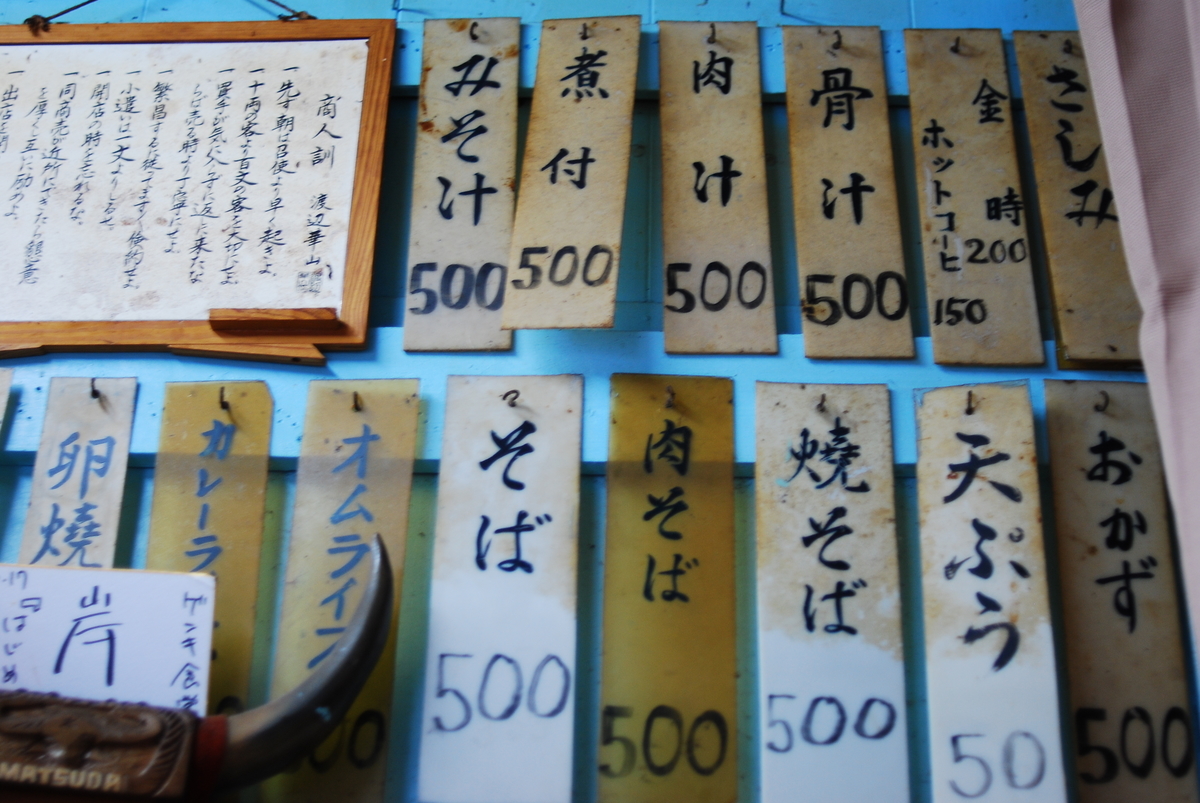 商人訓 渡辺華山
一 先ず朝は召使より早く起きよ
一 十両の客より百文の客を大切にせよ
一 買手が気に入らずに返しに来たな
らば売る時より丁寧にせよ
一 繁昌するに従ってますます倹約せよ
一 小遣いは一文よりしるせ
一 開店の時を忘れるな
一 同商売が近所にできたら懇意
を厚くし互に励めよ
みそ汁
500
煮付
500
肉汁
500
骨汁
500
金時
200
ホットコーヒ
150
さしみ
卵焼
カレーラ
オムライス
そば
500
肉そば
500
焼そば
500
天ぷら
50
おかず
500
ゲンキ食堂
岸
-17
『はじめ
MATSUDA